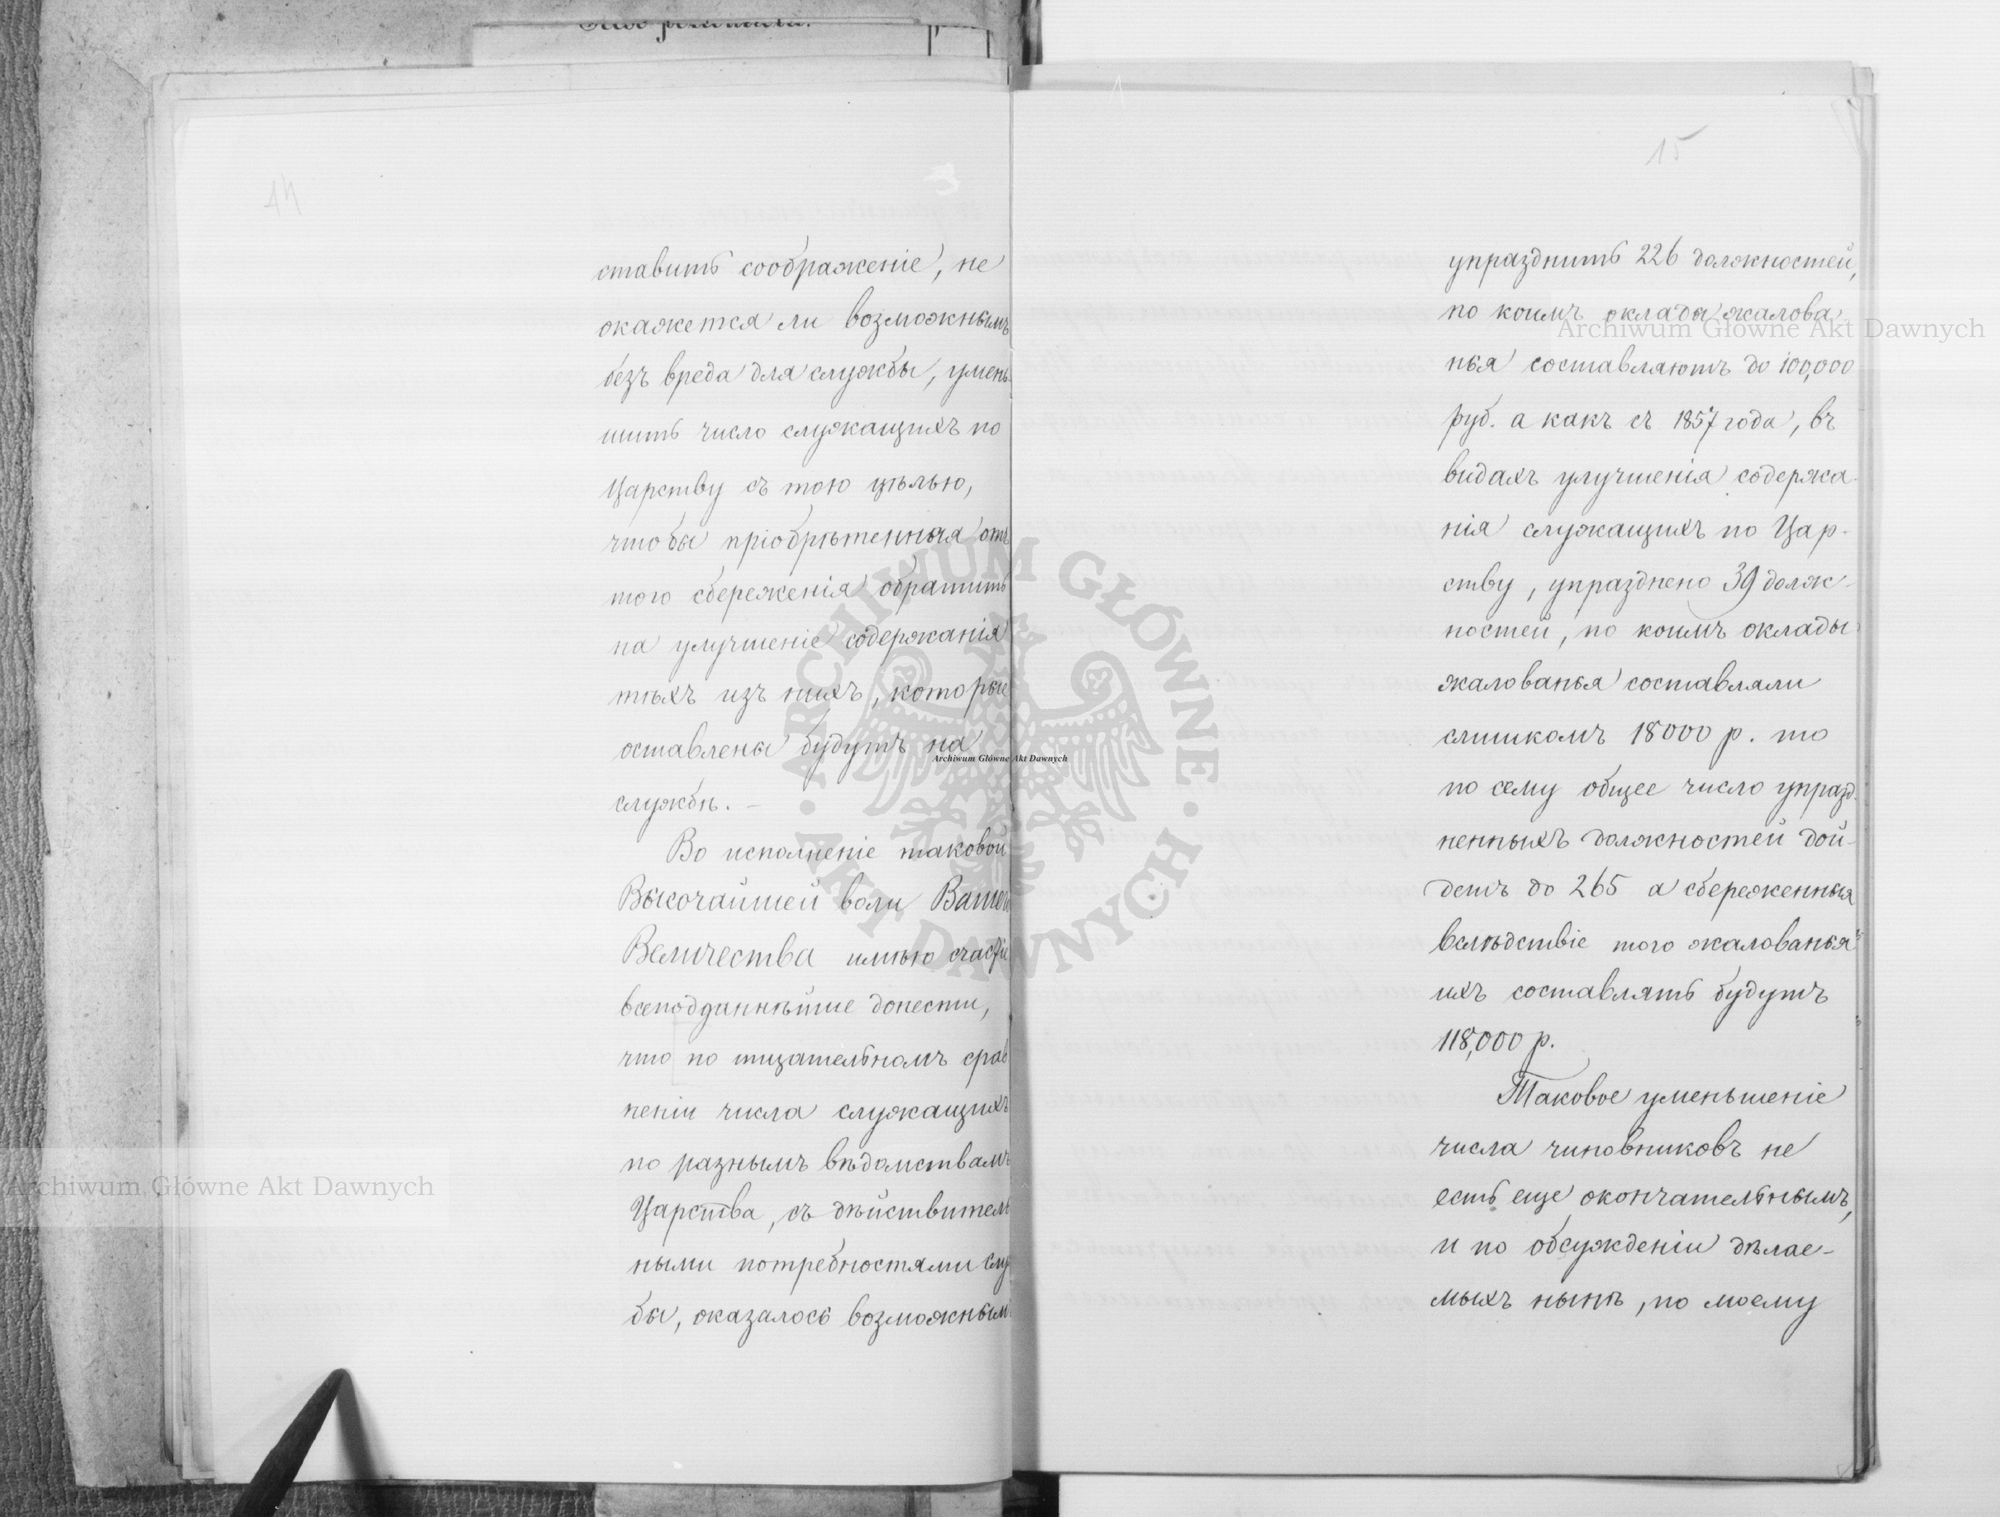 14
ставить соображеніе, не
окажется ли возможнымъ
безъ вреда для службы, умень-
шить число служащихъ по
Царству съ тою цѣлью,
чтобы пріобрѣтенныя отъ
того сбереженія обратить
на улучшеніе содержанія
тѣхъ изъ нихъ, которые
оставлены будутъ на
службѣ. —
Во исполненіе таковой
Высочайшей воли Вашего
Величества имѣю счастіе
всеподданнѣйше донести,
что по тщательномъ срав
неніи числа служащихъ
по разнымъ вѣдомствамъ
Царства, съ дѣйствитель
ными потребностями служ
бы, оказалось возможнымъ
15
упразднить 226 должностей,
по коимъ оклады жалова-
нья составляютъ до 100,000
руб. а какъ съ 1857 года, въ
видахъ улучшенія содержа-
нія служащихъ по Цар-
ству, упразднено 39 долж-
ностей, по коимъ оклады
жалованья составляли
слишкомъ 18000 р. то
по сему общее число упразд-
ненныхъ должностей дой-
детъ до 265 а сбереженныя
вслѣдствіе того жалованья
ихъ составлять будутъ
118,000 р.
Таковое уменьшеніе
числа чиновниковъ не
есть еще окончательнымъ,
и по обсужденіи дѣлае-
мыхъ нынѣ, по моему
Archiwum Główne Akt Dawnych
Archiwum Główne Akt Dawnych
Archiwum Główne Akt Dawnych
ARCHIWUM GŁÓWNE · AKT DAWNYCH ·